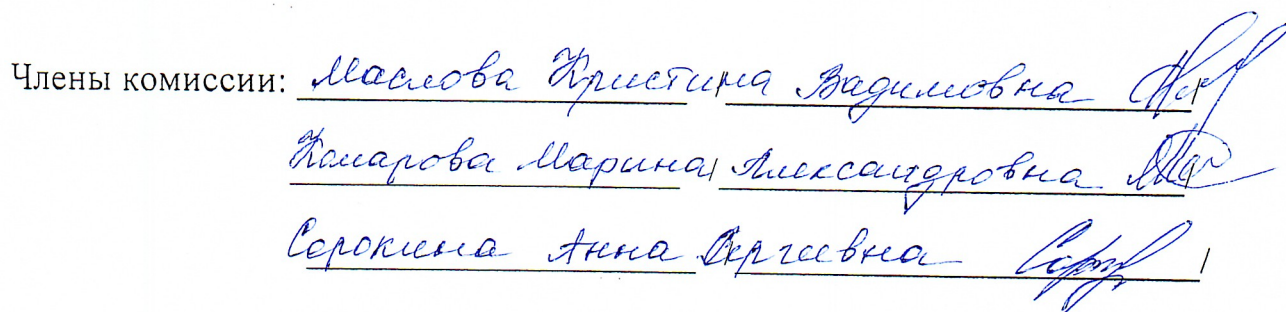 Члены комиссии: Маслова Кристина Вадимовна
Комарова Марина Александровна
Сорокина Анна Сергеевна